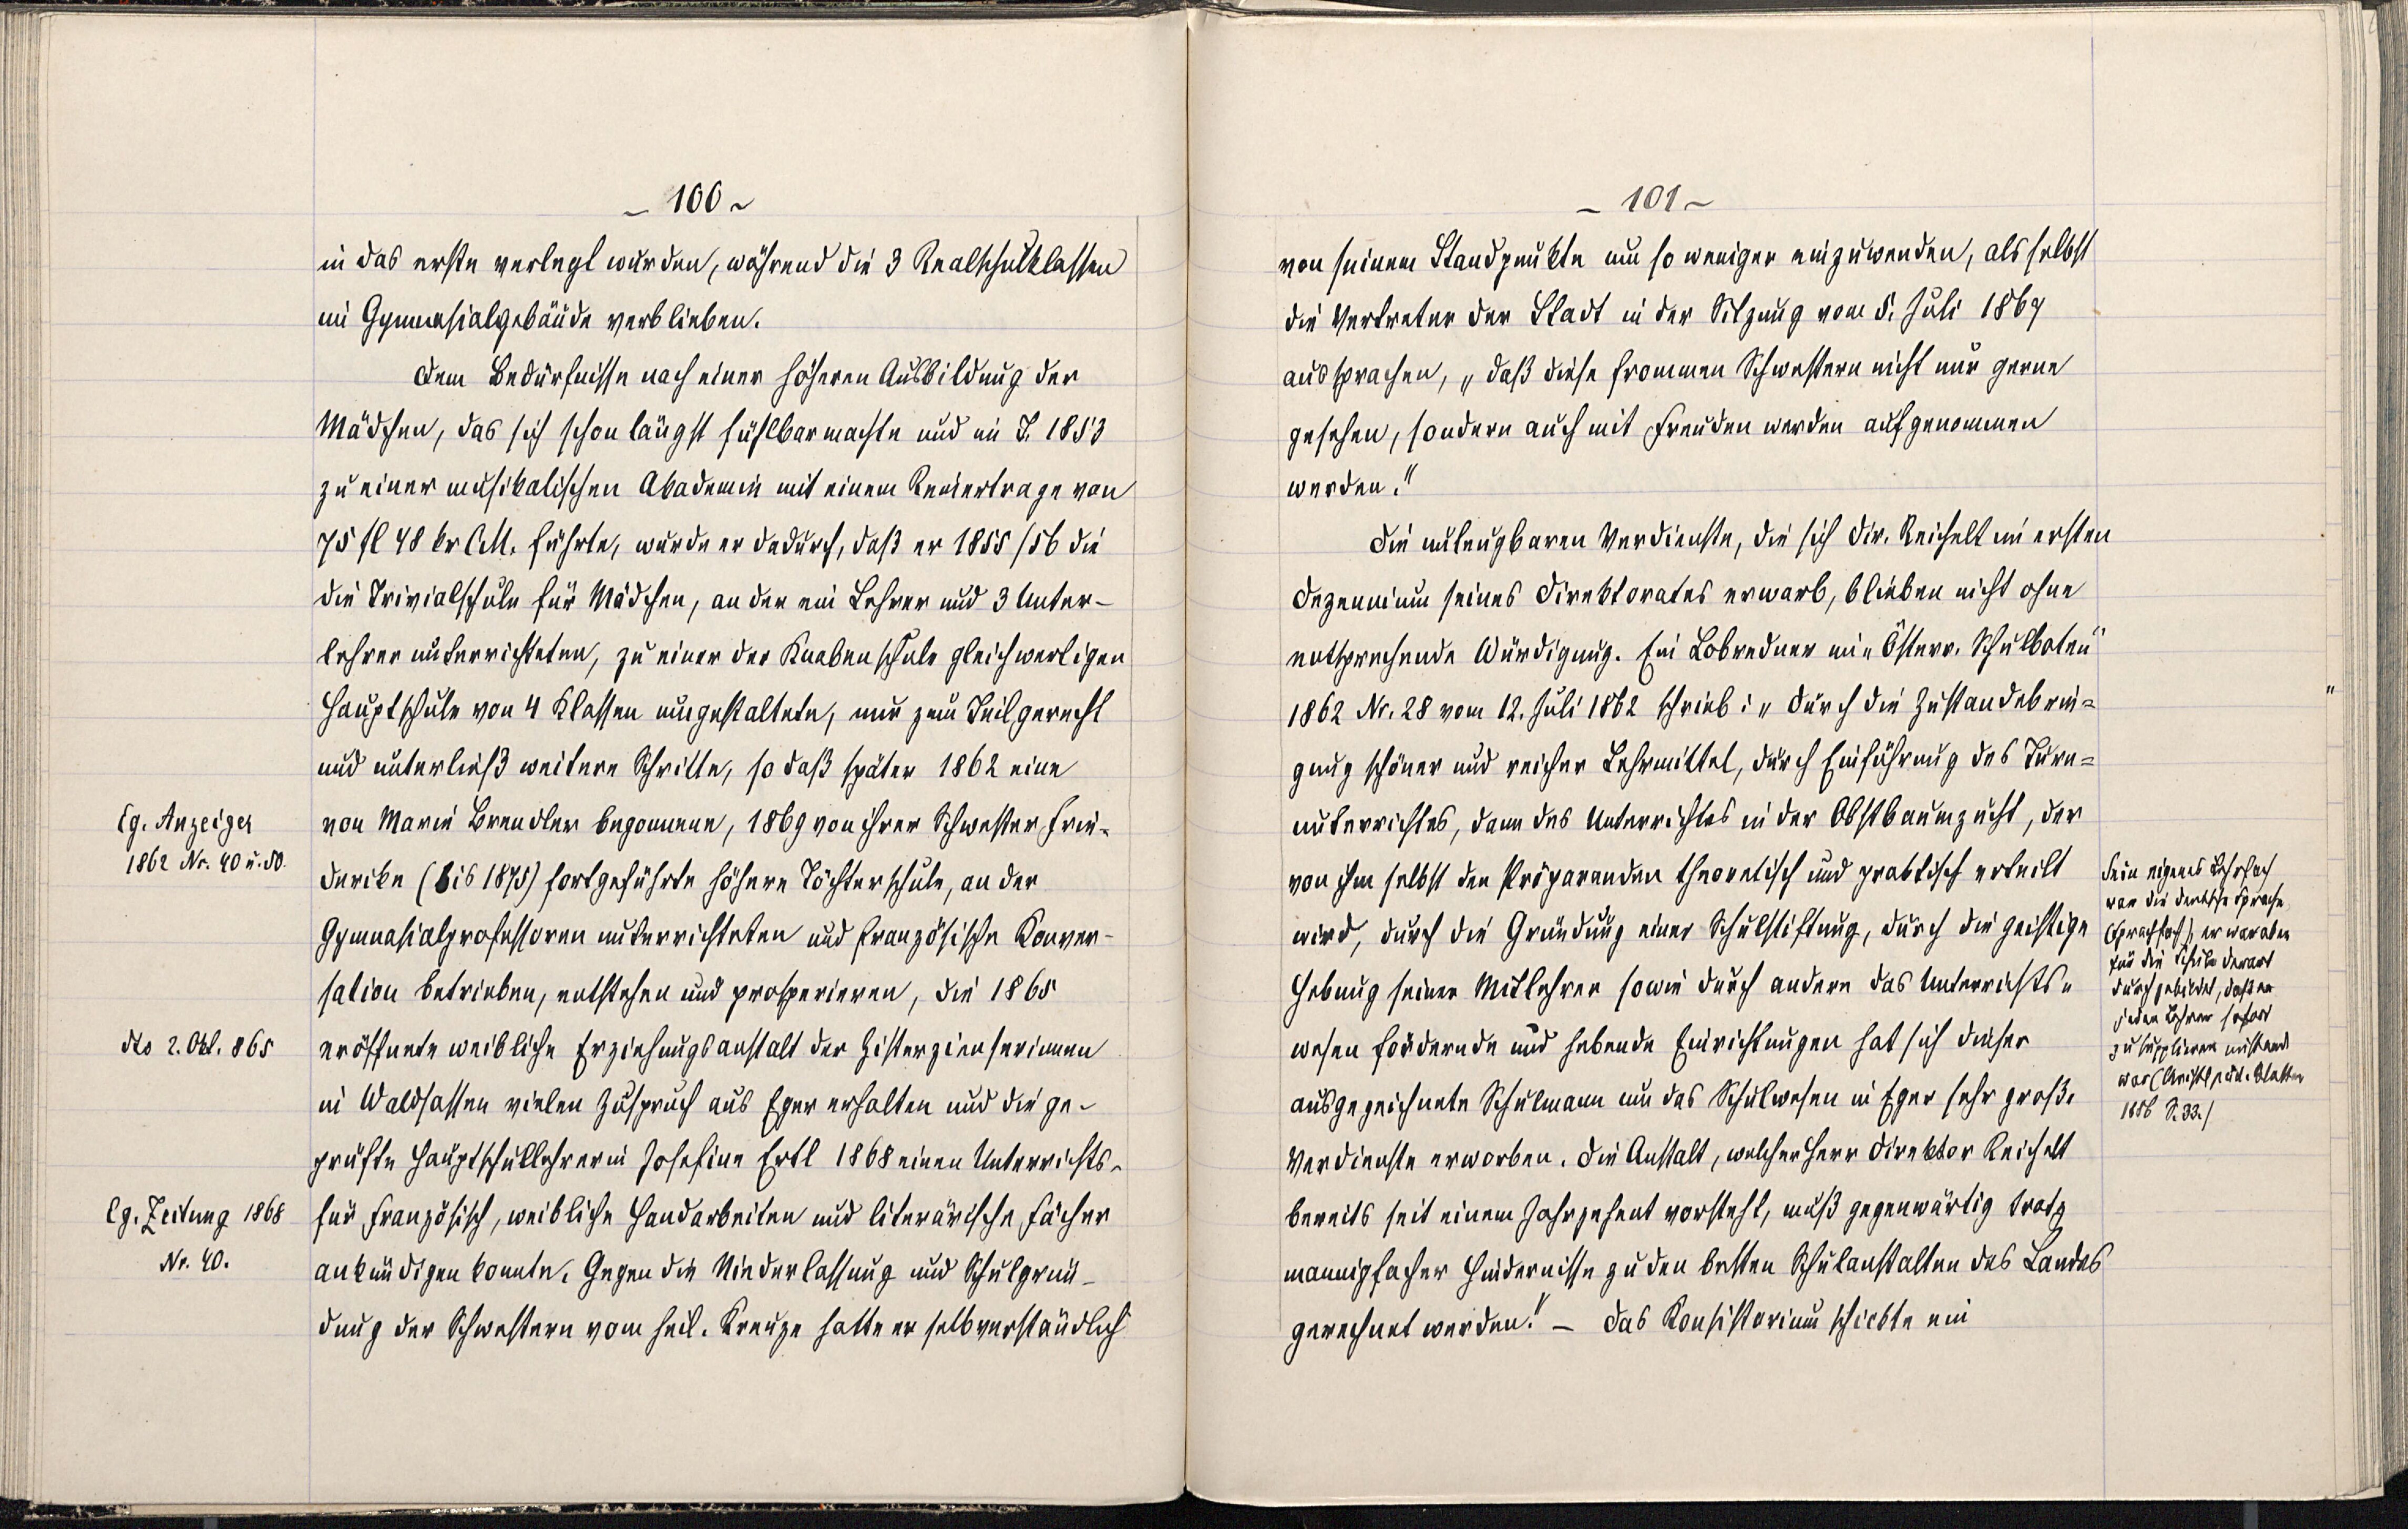 – 100 ~
in das erste verlegt wurden, während die 3 Realschulklassen
im Gymnasialgebäude verblieben.
Dem Bedürfnisse nach einer höheren Ausbildung der
Mädchen, das sich schon längst fühlbar machte und im J. 1853
zu einer musikalischen Akademie mit einem Reinertrage von
75 fl 48 kr CM. führte, wurde er dadurch, daß er 1855/56 die
die Trivialschule für Mädchen, an der ein Lehrer und 3 Unter-
lehrer unterrichteten, zu einer der Knabenschule gleichwertigen
Hauptschule von 4 Klassen umgestaltete, nur zum Teil gerecht
und unterließ weitere Schritte, so daß später 1862 eine
von Marie Brendler begonnene, 1869 von ihrer Schwester Frie-
derike (bis 1875) fortgeführte höhere Töchterschule, an der
Gymnasialprofessoren unterrichteten und französische Konver-
sation betrieben, entstehen und prosperieren, die 1865
eröffnete weibliche Erziehungsanstalt der Zisterzienserinnen
in Waldsassen vielen Zuspruch aus Eger erhalten und die ge-
prüfte Hauptschullehrerin Josefine Ertl 1868 einen Unterrichts-
für Französisch, weibliche Handarbeiten und literärische Fächer
ankündigen konnte. Gegen die Niederlassung und Schulgrün-
dung der Schwestern vom heil. Kreuze hatte er selbverständlich
Eg. Anzeiger
1862 Nr. 40 u. 50.
dto 2. Okt. 865
Eg. Zeitung 1868
Nr. 40.
– 101 ~
von seinem Standpunkte um so weniger einzuwenden, als selbst
die Vertreter der Stadt in der Sitzung vom 5. Juli 1867
aussprachen, „daß diese frommen Schwestern nicht nur gerne
gesehen, sondern auch mit Freuden werden aufgenommen
werden."
Die unleugbaren Verdienste, die sich Dir. Reichelt im ersten
Dezennium seines Direktorates erwarb, blieben nicht ohne
entsprechende Würdigung. Ein Lobredner im „Österr. Schulboten"
1862 Nr. 28 vom 12. Juli 1862 schrieb: „Durch die Zustandebrin=
gung schöner und reicher Lehrmittel, durch Einführung des Turn=
unterrichtes, dann des Unterrichtes in der Obstbaumzucht, der
von ihm selbst den Präparanden theoretisch und praktisch erteilt
wird, durch die Gründung einer Schulstiftung, durch die geistige
Hebung seiner Mitlehrer sowie durch andere das Unterrichts=
wesen fördernde und hebende Einrichtungen hat sich dieser
ausgezeichnete Schulmann um das Schulwesen in Eger sehr große
Verdienste erworben. Die Anstalt, welcher Herr Direktor Reichelt
bereits seit einem Jahrzehent vorsteht, muß gegenwärtig trotz
mannigfacher Hindernisse zu den besten Schulanstalten des Landes
gerechnet werden." – Das Konsistorium schickte ein
Sein eigenes Lehrfach
war die deutsche Sprache
(Sprachfach), er war aber
für die Schule derart
durchgebildet, daß er
jeden Lehrer sofort
zu supplieren imstand
war (Christl. päd. Blätter
1886 S. 33.)